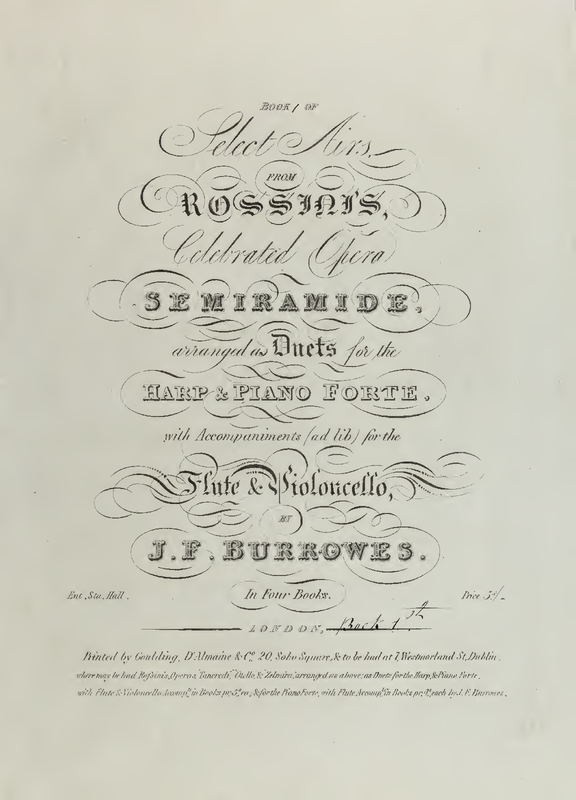 BOOK 1 OF
Select Airs,
FROM
ROSSINI'S,
Celebrated Opera
SEMIRAMIDE,
arranged as Duets for the
HARP & PIANO FORTE,
with Accompaniments (ad lib) for the
Flute & Violoncello,
BY
J. F. BURROWES.
Ent. Sta. Hall. In Four Books. Price 5/-
LONDON, Book 1st
Printed by Goulding, D'Almaine & Co. 20, Soho Square, & to be had at 7, Westmorland St, Dublin,
where may be had Rossini's, Operas, "Tancredi," Otello, & "Zelmira," arranged as above; as Duets for the Harp, & Piano Forte,
with Flute & Violoncello Accompts. in Books pr. 5s. ea; & for the Piano Forte, with Flute Accompt. in Books pr. each by J. F. Burrowes.